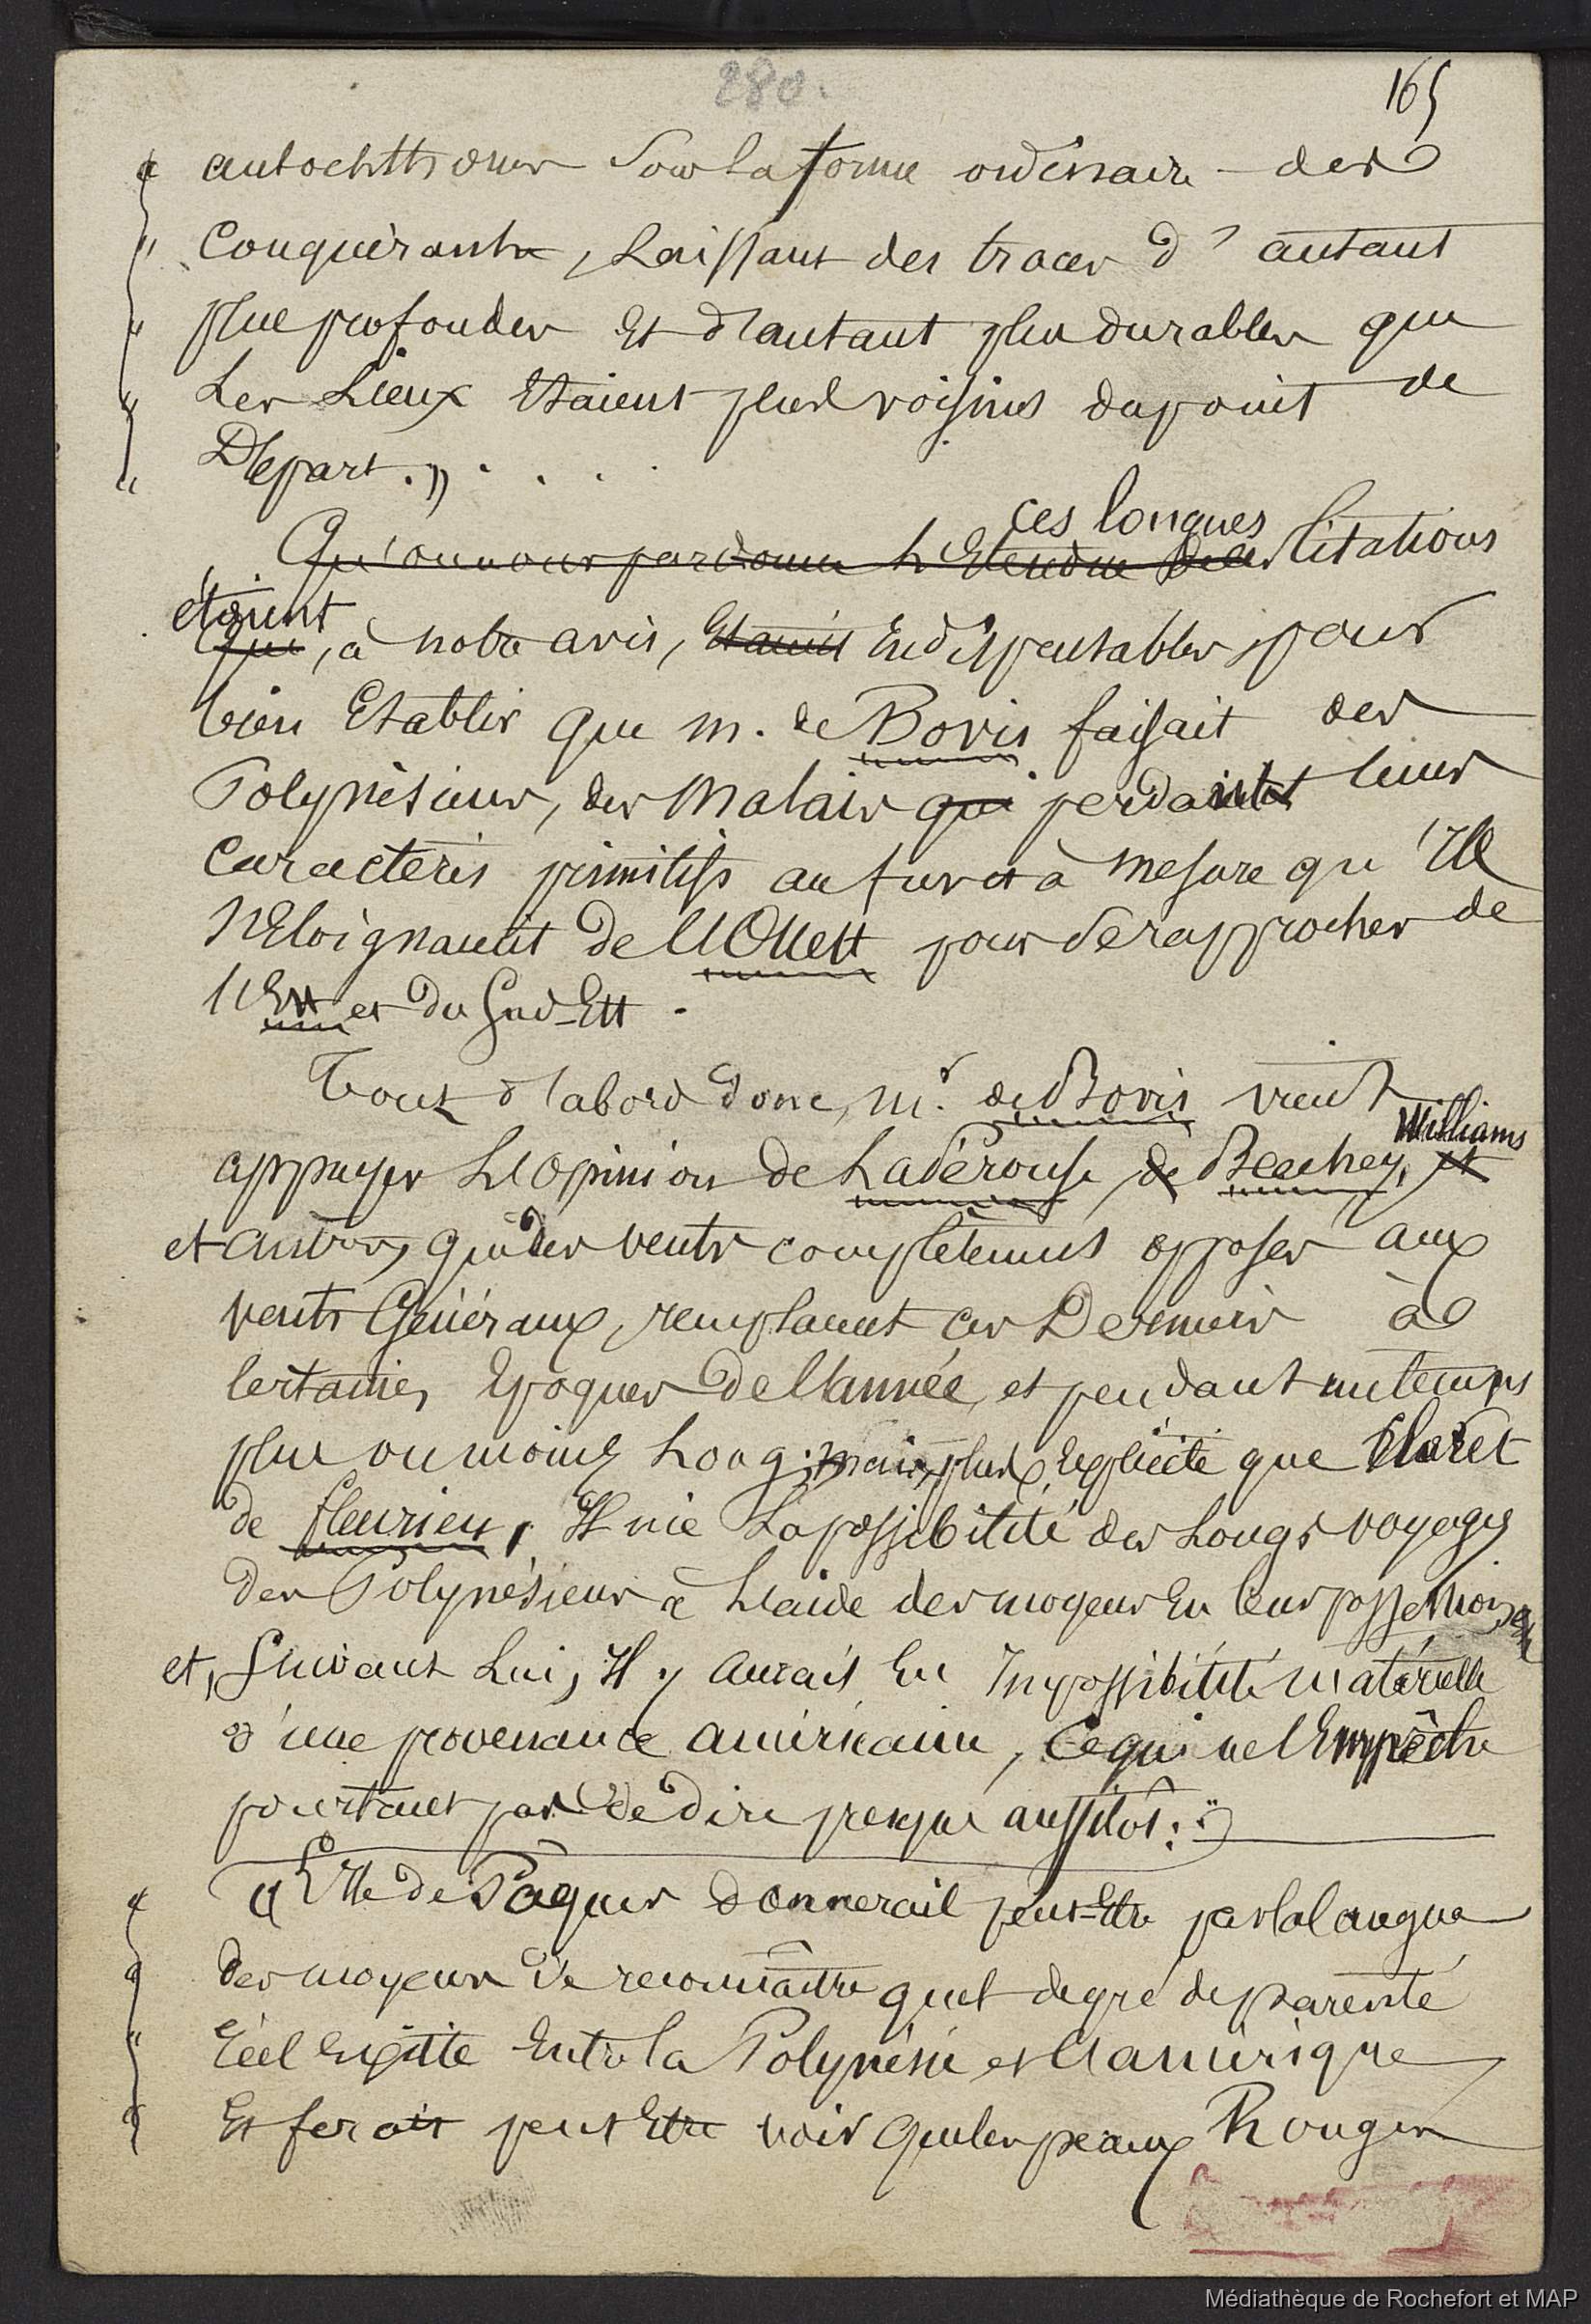 280.
165
autochthones sous la forme ordinaire des
Conquérants, Laissant des traces d'autant
plus profondes Et d'autant plus durables que
Les Lieux Etaient plus voisins du point de
Départ. » . . . .
ces longues
Qu'on nous pardonne L'Etendue des Citations
étaient
qui, à notre avis, Etaient Indispensables pour
bien Etablir que M. de Bovis faisait des
Polynésiens, des Malais qui perdaient leurs
Caractères primitifs au fur et à mesure qu'Ils
s'Eloignaient de l'Ouest pour se rapprocher de
l'Est et du Sud-Est.
Tout d'abord donc, Mr. de Bovis vient
Williams
appuyer L'Opinion de LaPérouse, de Beechey, et
et autres, que des vents complètement opposés aux
vents Généraux, remplacent ces Derniers à
Certaines Epoques de l'année, et pendant un temps
plus ou moins Long; mais, plus Explicite que Claret
de fleurieu, Il nie La possibilité des Longs voyages
des Polynésiens à L'aide des moyens En leur possession,
et, Suivant Lui, Il y aurait Eu Impossibilité matérielle
d'une provenance américaine, Ce qui ne l'Empêche
pourtant pas de dire presque aussitôt :
« L'Ile de Pâques donnerait peut-Etre par la langue
des moyens de reconnaître quel degré de parenté
réel Existe Entre la Polynésie et l'amérique
Et ferait peut Etre voir que les peaux Rouges
Médiathèque de Rochefort et MAP